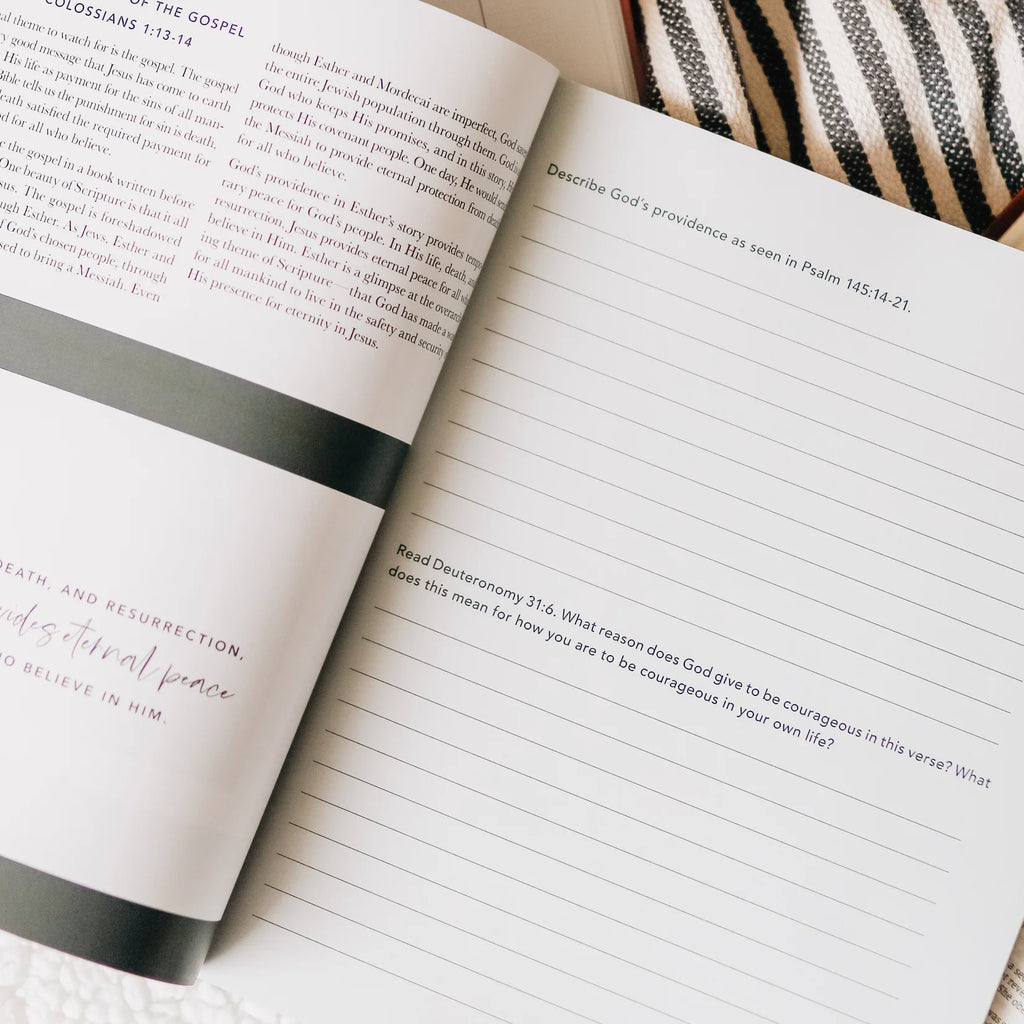 OF THE GOSPEL
COLOSSIANS 1:13-14
theme to watch for is the gospel. The gospel
good message that Jesus has come to earth
His life as payment for the sins of all man-
Bible tells us the punishment for sin is death.
death satisfied the required payment for
for all who believe.
the gospel in a book written before
One beauty of Scripture is that it all
The gospel is foreshadowed
Esther. As Jews, Esther and
of God's chosen people, through
to bring a Messiah. Even
though Esther and Mordecai are imperfect, God
the entire Jewish population through them. God is
God who keeps His promises, and in this story, He
protects His covenant people. One day, He would
the Messiah to provide eternal protection from
for all who believe.
God's providence in Esther's story provides
rary peace for God's people. In His life, death,
resurrection, Jesus provides eternal peace for all
believe in Him. Esther is a glimpse at the
ing theme of Scripture—that God has made a
for all mankind to live in the safety and security
His presence for eternity in Jesus.
DEATH, AND RESURRECTION,
eternal peace
BELIEVE IN HIM.
Describe God's providence as seen in Psalm 145:14-21.
Read Deuteronomy 31:6. What reason does God give to be courageous in this verse? What
does this mean for how you are to be courageous in your own life?